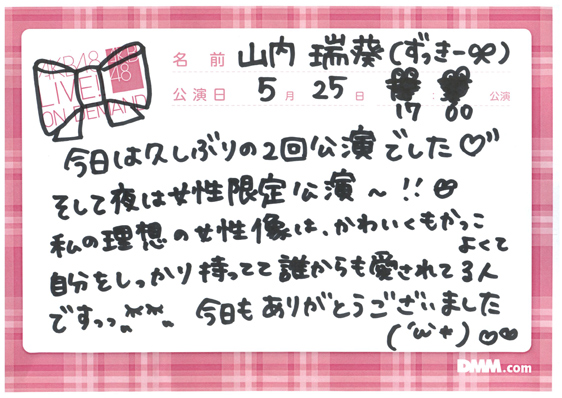 AKB48
LIVE!!
ON DEMAND
AKB
48
名 前 山内 瑞葵(ずっきー)
公演日 5月 25日 17:00 公演
今日は久しぶりの2回公演でした♡
そして夜は女性限定公演〜!!
私の理想の女性像は、かわいくもかっこ
よくて
自分をしっかり持ってて誰からも愛されてる人
ですっっ 今日もありがとうございました
(´ω`+)♡
DMM.com